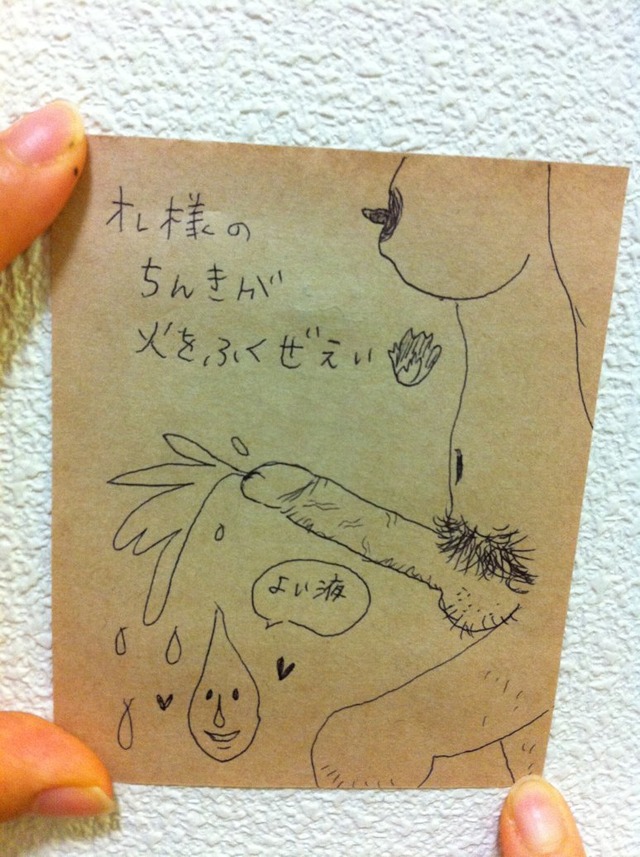 オレ様の
ちんきが
火をふくぜえい
よい液